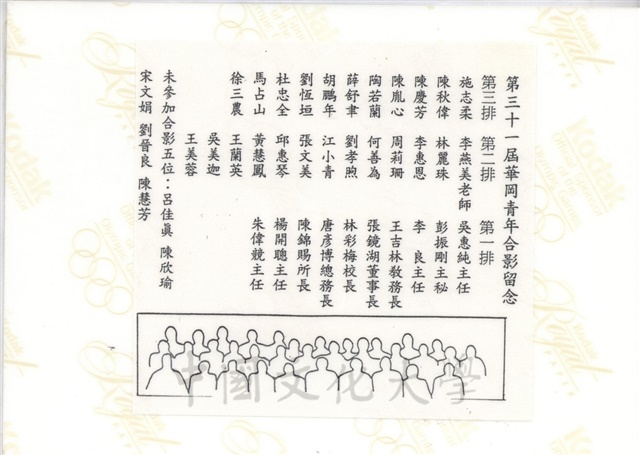 第三十一屆華岡青年合影留念
第三排 第二排 第一排
施志柔 李燕美老師 吳惠純主任
陳秋偉 林麗珠 彭振剛主秘
陳慶芳 李惠恩 李 良主任
陳胤心 周莉珊 王吉林教務長
陶若蘭 何善為 張鏡湖董事長
薛舒聿 劉孝煦 林彩梅校長
胡鵬年 江小青 唐彥博總務長
劉恆垣 張文美 陳錦賜所長
杜忠全 邱惠琴 楊開聰主任
馬占山 黃慧鳳 朱偉競主任
徐三農 王蘭英
吳美迦
王美蓉
未參加合影五位：呂佳眞 陳欣瑜
宋文娟 劉晉良 陳慧芳
中國文化大學
Royal